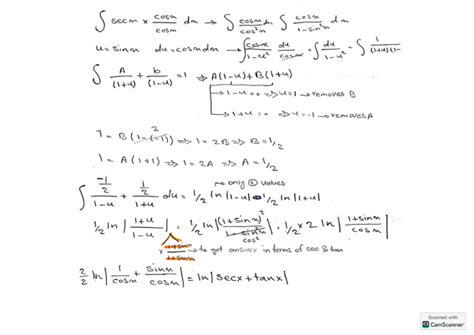 ∫ secx × cosx/cosx dx → ∫ cosx/cos²x dx ∫ cosx/1-sin²x dx
u = sinx du = cosx dx → ∫ cosx/1-u² du/cosx = ∫ du/1-u² = ∫ 1/(1+u)(1-
∫ A/(1+u) + b/(1-u) = 1 ⇒ A(1-u) + B(1+u)
→ 1-u=0 ⇒ u=1 → removes B
→ 1+u=0 ⇒ u=-1 → removes A
1 = B(1-(-1)) 2 ⇒ 1=2B ⇒ B=1/2
1 = A(1+1) ⇒ 1=2A ⇒ A=1/2
→ only values
∫ -1/2/1-u + 1/2/1+u du = 1/2 ln|1-u| 1/2 ln|1+u|
1/2 ln|1+u/1-u| = 1/2 ln|(1+sinx)²/cos²| = 1/2 × 2 ln|1+sinx/cosx|
× 1+sinx/1+sinx → to get answer in terms of sec & tan
2/2 ln|1/cosx + sinx/cosx| = ln|secx + tanx|
Scanned with
CS CamScanner